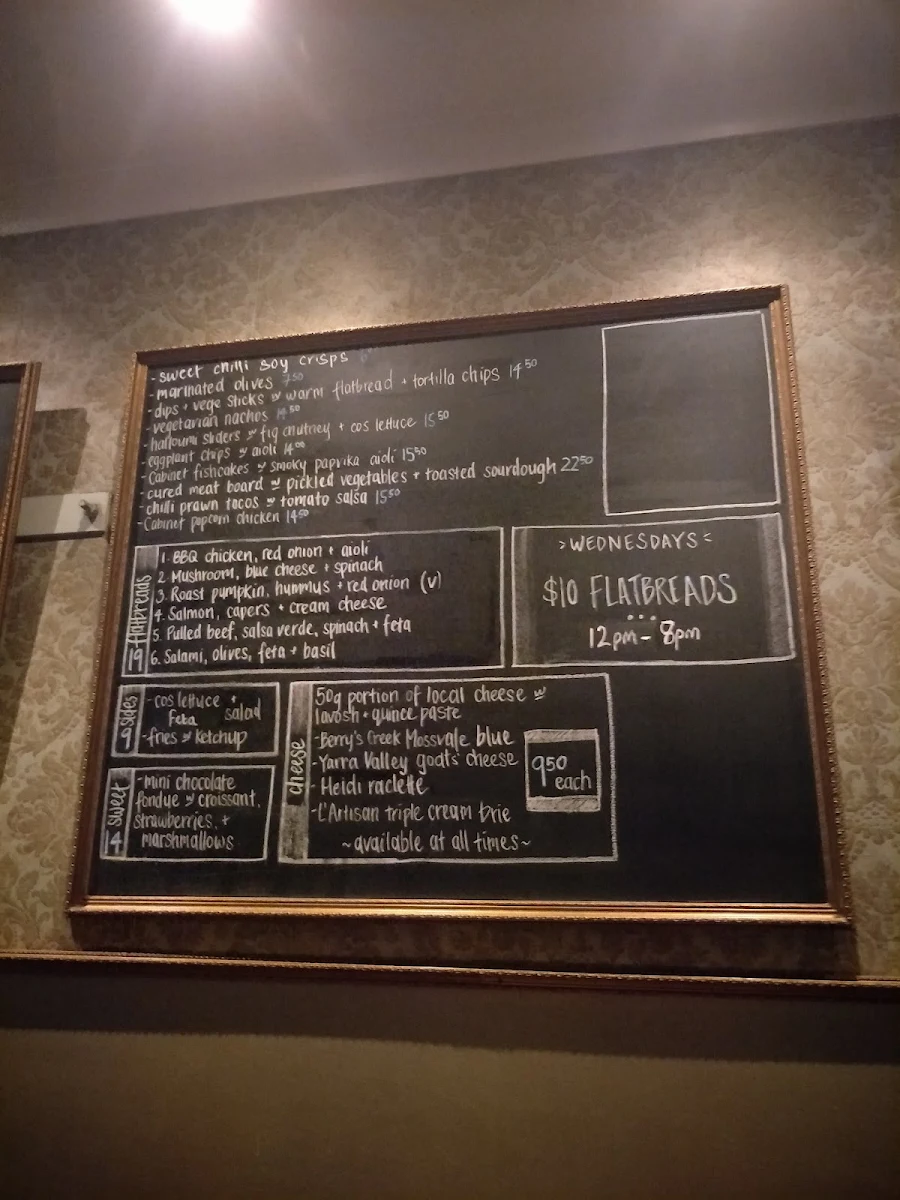 -sweet chilli soy crisps
-marinated olives 7.50
-dips + vege sticks w warm flatbread + tortilla chips 14.50
-vegetarian nachos 14.50
-halloumi sliders w fig chutney + cos lettuce 15.50
-eggplant chips w aioli 14.00
-Cabinet fishcakes w smoky paprika aioli 15.50
-cured meat board w pickled vegetables + toasted sourdough 22.50
-chilli prawn tacos w tomato salsa 15.50
-Cabinet popcorn chicken 14.50
19 flatbreads
1. BBQ chicken, red onion + aioli
2. Mushroom, blue cheese + spinach
3. Roast pumpkin, hummus + red onion (v)
4. Salmon, capers + cream cheese
5. Pulled beef, salsa verde, spinach + feta
6. Salami, olives, feta + basil
>WEDNESDAYS<
$10 FLATBREADS
...
12pm - 8pm
9 sides
-cos lettuce +
feta salad
-fries w ketchup
14 sweet
-mini chocolate
fondue w croissant,
strawberries, +
marshmallows
cheese
50g portion of local cheese w
lavosh + quince paste
-Berry's Creek Mossvale blue
-Yarra Valley goats' cheese
-Heidi raclette
-L'Artisan triple cream brie
~available at all times~
9.50
each